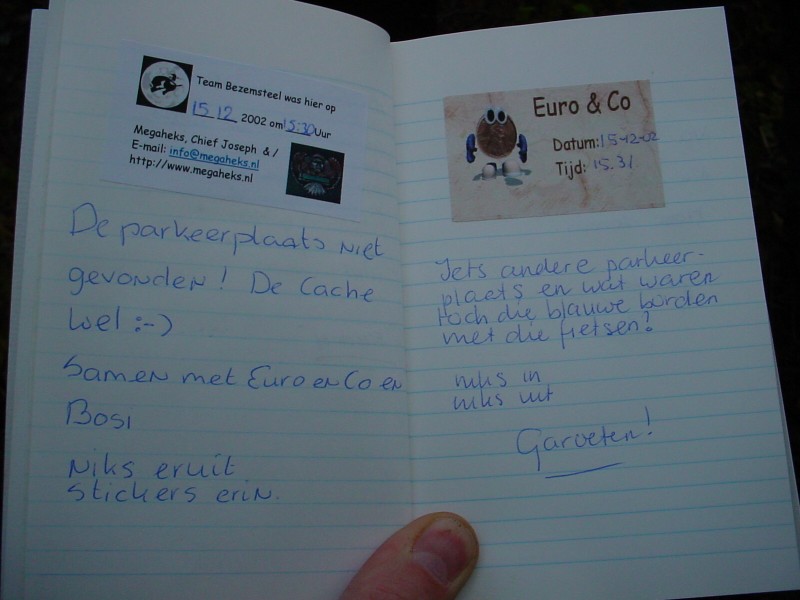 Team Bezemsteel was hier op
15 12 2002 om 15:30 Uur
Megaheks, Chief Joseph & /
E-mail: info@megaheks.nl
http://www.megaheks.nl
De parkeerplaats niet
gevonden! De Cache
wel :-)
Samen met Euro en Co en
Bosi
Niks eruit
Stickers erin.
Euro & Co
Datum: 15-12-02
Tijd: 15.31
Iets andere parkeer-
plaats en wat waren
toch die blauwe borden
met die fietsen?
niks in
niks uit
Garoeten!